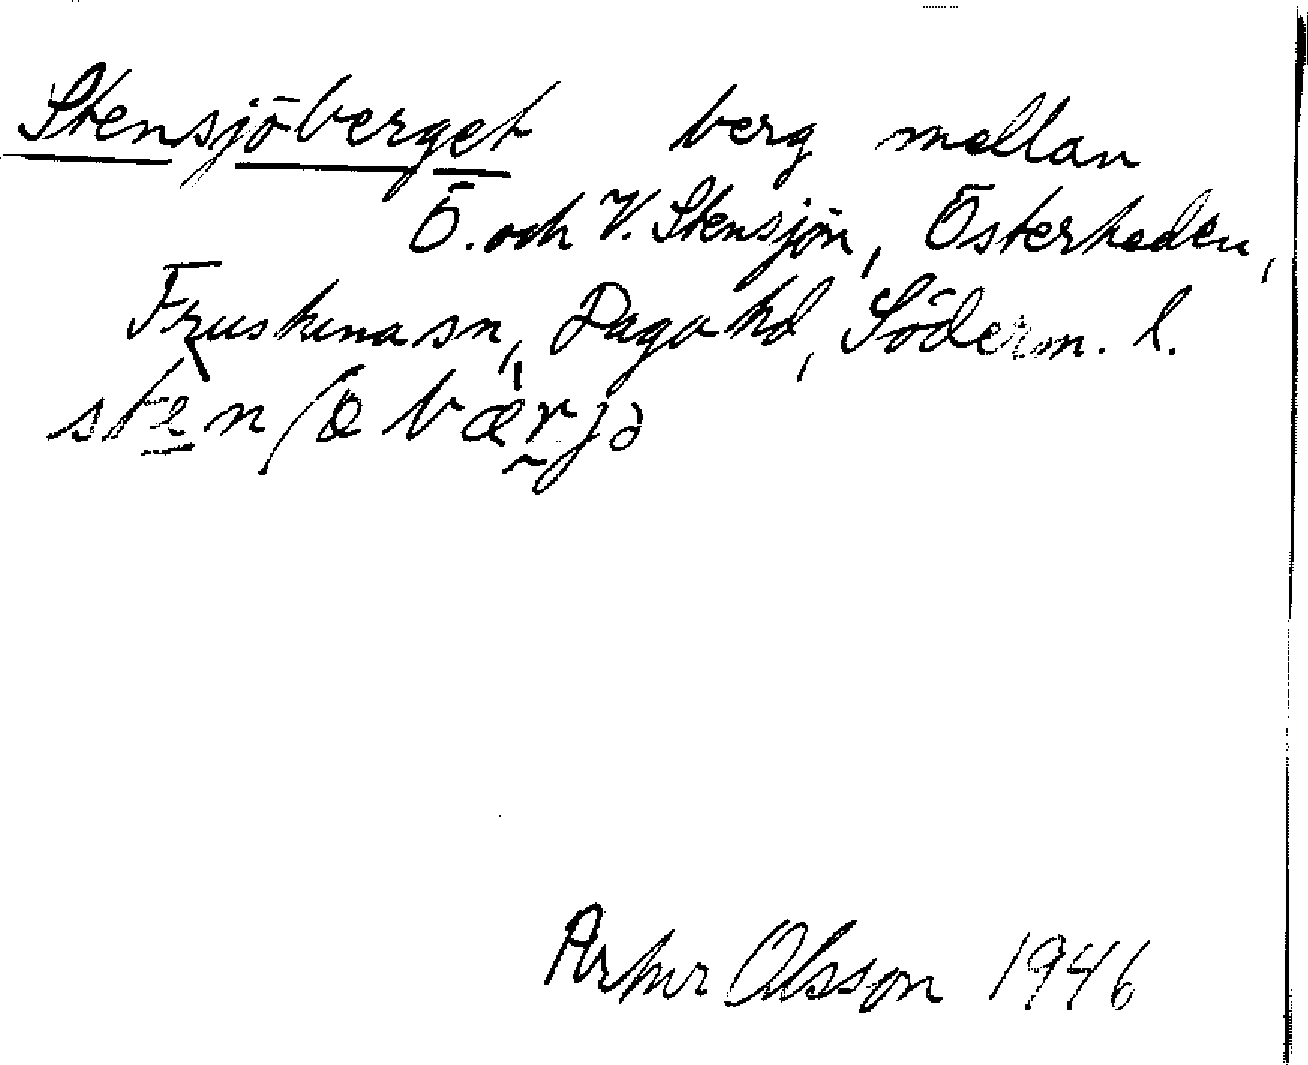 Stensjöberget berg mellan
Ö. och V. Stensjön, Österheden,
Daga hd, Söderm. l.
sten
Arthur Olsson 1946